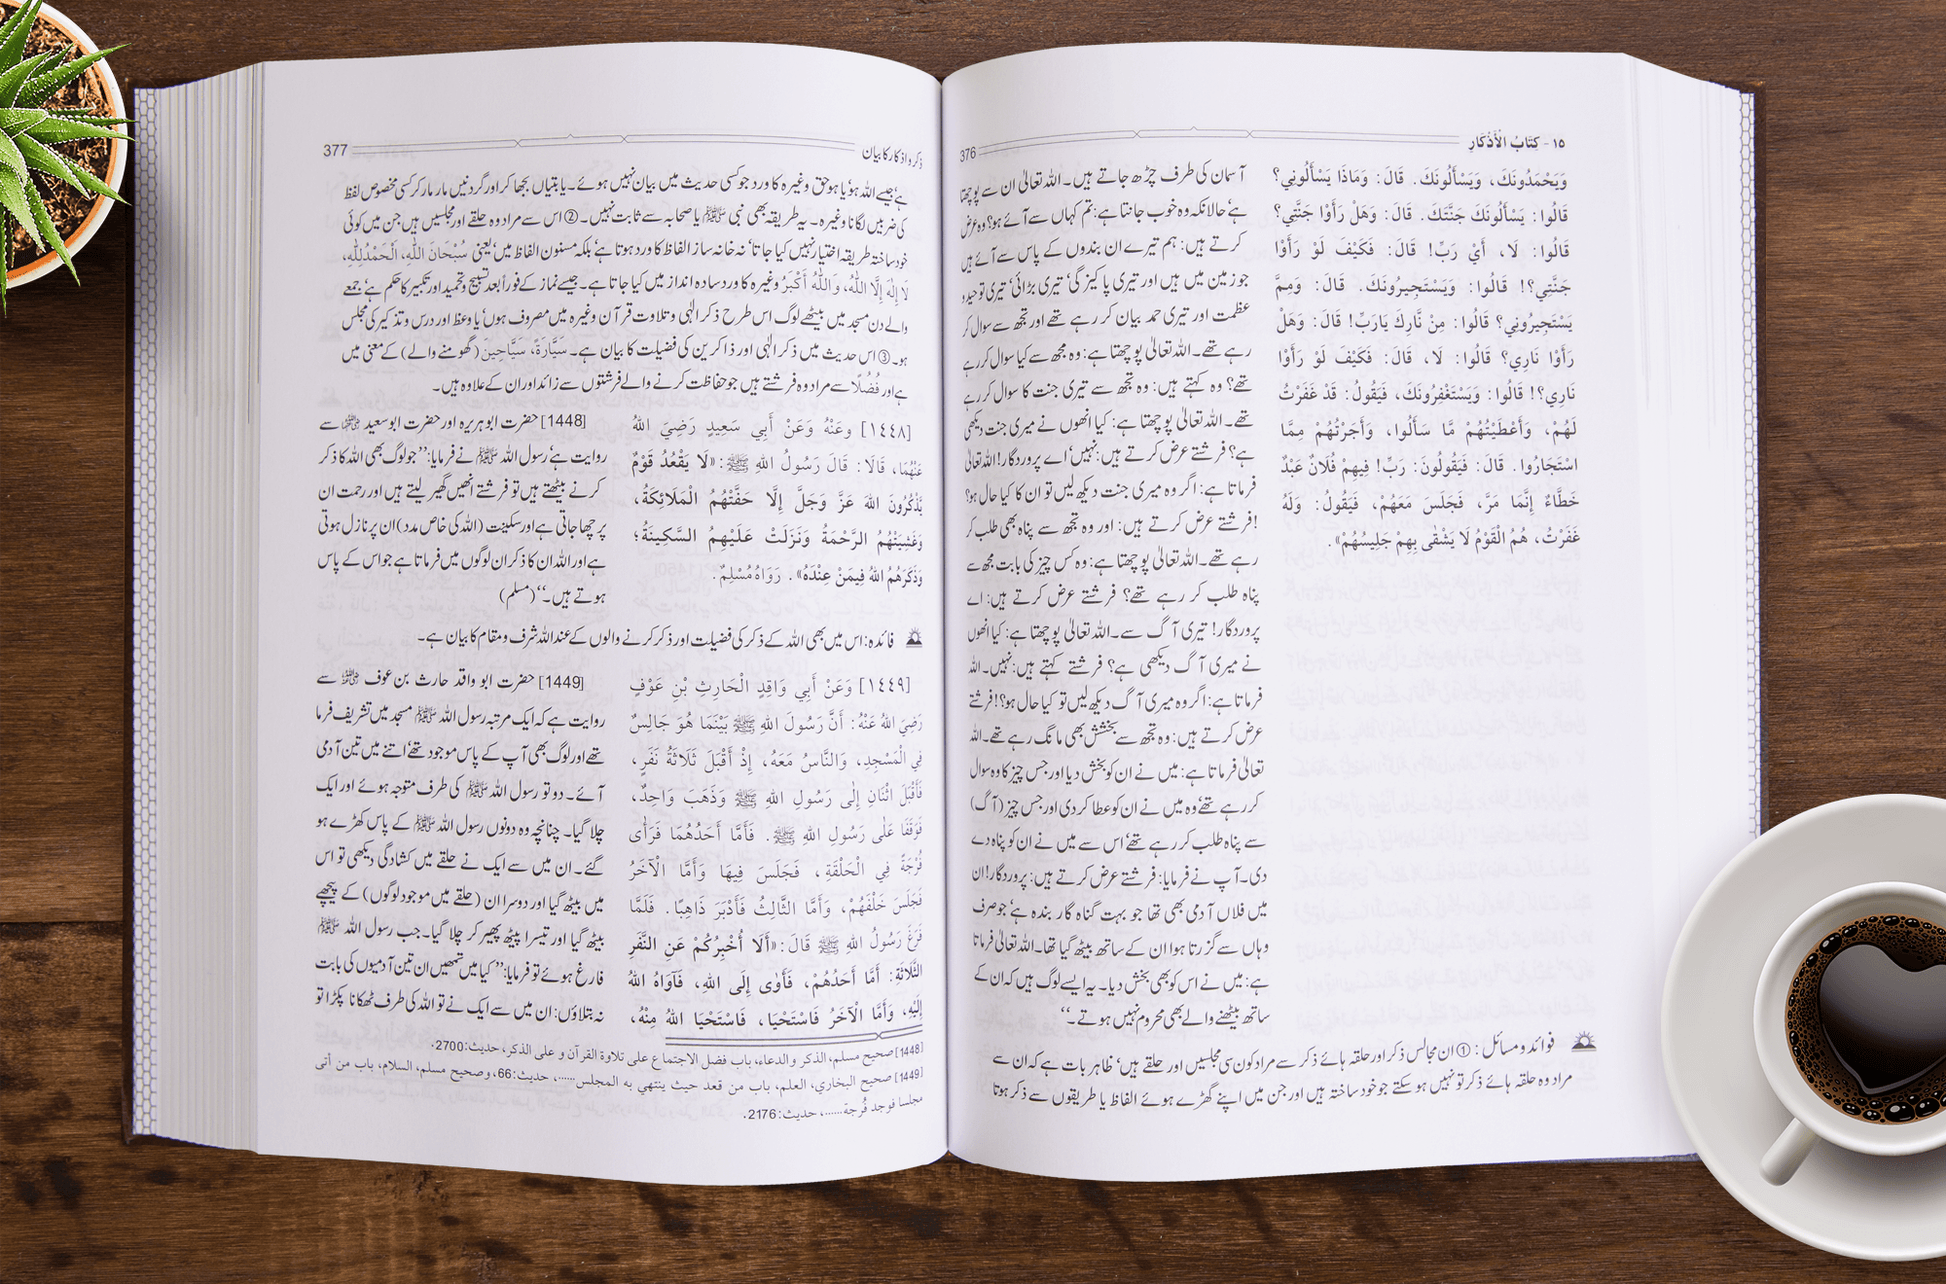 ١٥ - كِتَابُ الْأَذْكَارِ
376
وَيَحْمَدُونَكَ، وَيَسْأَلُونَكَ. قَالَ: وَمَاذَا يَسْأَلُونِي؟
قَالُوا: يَسْأَلُونَكَ جَنَّتَكَ. قَالَ: وَهَلْ رَأَوْا جَنَّتِي؟
قَالُوا: لَا، أَيْ رَبِّ! قَالَ: فَكَيْفَ لَوْ رَأَوْا
جَنَّتِي؟! قَالُوا: وَيَسْتَجِيرُونَكَ. قَالَ: وَمِمَّ
يَسْتَجِيرُونِي؟ قَالُوا: مِنْ نَّارِكَ يَارَبِّ! قَالَ: وَهَلْ
رَأَوْا نَارِي؟ قَالُوا: لَا، قَالَ: فَكَيْفَ لَوْ رَأَوْا
نَارِي؟! قَالُوا: وَيَسْتَغْفِرُونَكَ، فَيَقُولُ: قَدْ غَفَرْتُ
لَهُمْ، وَأَعْطَيْتُهُمْ مَّا سَأَلُوا، وَأَجَرْتُهُمْ مِمَّا
اسْتَجَارُوا. قَالَ: فَيَقُولُونَ: رَبِّ! فِيهِمْ فُلَانٌ عَبْدٌ
خَطَّاءٌ إِنَّمَا مَرَّ، فَجَلَسَ مَعَهُمْ، فَيَقُولُ: وَلَهُ
غَفَرْتُ، هُمُ الْقَوْمُ لَا يَشْقَى بِهِمْ جَلِيسُهُمْ».
آسمان کی طرف چڑھ جاتے ہیں۔ اللہ تعالیٰ ان سے پوچھتا
ہے حالانکہ وہ خوب جانتا ہے: تم کہاں سے آئے ہو؟ وہ عرض
کرتے ہیں: ہم تیرے ان بندوں کے پاس سے آئے ہیں
جو زمین میں ہیں اور تیری پاکیزگی، تیری بڑائی، تیری توحید و
عظمت اور تیری حمد بیان کر رہے تھے اور تجھ سے سوال کر
رہے تھے۔ اللہ تعالیٰ پوچھتا ہے: وہ مجھ سے کیا سوال کر رہے
تھے؟ وہ کہتے ہیں: وہ تجھ سے تیری جنت کا سوال کر رہے
تھے۔ اللہ تعالیٰ پوچھتا ہے: کیا انھوں نے میری جنت دیکھی
ہے؟ فرشتے عرض کرتے ہیں: نہیں، اے پروردگار! اللہ تعالیٰ
فرماتا ہے: اگر وہ میری جنت دیکھ لیں تو ان کا کیا حال ہو؟
!فرشتے عرض کرتے ہیں: اور وہ تجھ سے پناہ بھی طلب کر
رہے تھے۔ اللہ تعالیٰ پوچھتا ہے: وہ کس چیز کی بابت مجھ سے
پناہ طلب کر رہے تھے؟ فرشتے عرض کرتے ہیں: اے
پروردگار! تیری آگ سے۔ اللہ تعالیٰ پوچھتا ہے: کیا انھوں
نے میری آگ دیکھی ہے؟ فرشتے کہتے ہیں: نہیں۔ اللہ
فرماتا ہے: اگر وہ میری آگ دیکھ لیں تو کیا حال ہو؟! فرشتے
عرض کرتے ہیں: وہ تجھ سے بخشش بھی مانگ رہے تھے۔ اللہ
تعالیٰ فرماتا ہے: میں نے ان کو بخش دیا اور جس چیز کا وہ سوال
کر رہے تھے، وہ میں نے ان کو عطا کر دی اور جس چیز (آگ)
سے پناہ طلب کر رہے تھے، اس سے میں نے ان کو پناہ دے
دی۔ آپ نے فرمایا: فرشتے عرض کرتے ہیں: پروردگار! ان
میں فلاں آدمی بھی تھا جو بہت گناہ گار بندہ ہے، جو صرف
وہاں سے گزر رتا ہوا ان کے ساتھ بیٹھ گیا تھا۔ اللہ تعالیٰ فرماتا
ہے: میں نے اس کو بھی بخش دیا۔ یہ ایسے لوگ ہیں کہ ان کے
ساتھ بیٹھنے والے بھی محروم نہیں ہوتے۔“
فوائد و مسائل: ① ان مجالس ذکر اور حلقہ ہائے ذکر سے مراد کون سی مجلسیں اور حلقے ہیں، ظاہر بات ہے کہ ان سے
مراد وہ حلقہ ہائے ذکر تو نہیں ہو سکتے جو خود ساختہ ہیں اور جن میں اپنے گھڑے ہوئے الفاظ یا طریقوں سے ذکر ہوتا
ذکر و اذکار کا بیان
377
ہے، جیسے اللہ ہو، یا ہو حق وغیرہ کا ورد جو کسی حدیث میں بیان نہیں ہوئے۔ یا بتیاں بجھا کر اور گردنیں مار مار کر کسی مخصوص لفظ
کی ضربیں لگانا وغیرہ۔ یہ طریقہ بھی نبی ﷺ یا صحابہ سے ثابت نہیں۔ ② اس سے مراد وہ حلقے اور مجلسیں ہیں جن میں کوئی
خود ساختہ طریقہ اختیار نہیں کیا جاتا، نہ خانہ ساز الفاظ کا ورد ہوتا ہے، بلکہ مسنون الفاظ میں، یعنی سُبْحَانَ اللّٰهِ، اَلْحَمْدُلِلّٰهِ،
لَا إِلٰهَ إِلَّا اللّٰهُ، وَاللّٰهُ أَكْبَرُ وغیرہ کا ورد سادہ انداز میں کیا جاتا ہے۔ جیسے نماز کے فوراً بعد تسبیح و تحمید اور تکبیر کا حکم ہے، جمعے
والے دن مسجد میں بیٹھے لوگ اس طرح ذکر الٰہی و تلاوت قرآن وغیرہ میں مصروف ہوں، یا وعظ اور درس و تذکیر کی مجلس
ہو۔ ③ اس حدیث میں ذکر الٰہی اور ذاکرین کی فضیلت کا بیان ہے۔ سَيَّارَةً، سَيَّاحِينَ (گھومنے والے) کے معنی میں
ہے اور فُضُلًا سے مراد وہ فرشتے ہیں جو حفاظت کرنے والے فرشتوں سے زائد اور ان کے علاوہ ہیں۔
[١٤٤٨] وعَنْهُ وَعَنْ أَبِي سَعِيدٍ رَضِيَ اللهُ
عَنْهُمَا، قَالَا: قَالَ رَسُولُ اللهِ ﷺ: «لَا يَقْعُدُ قَوْمٌ
يَّذْكُرُونَ اللهَ عَزَّ وَجَلَّ إِلَّا حَفَّتْهُمُ الْمَلَائِكَةُ،
وَغَشِيَتْهُمُ الرَّحْمَةُ وَنَزَلَتْ عَلَيْهِمُ السَّكِينَةُ؛
وَذَكَرَهُمُ اللهُ فِيمَنْ عِنْدَهُ». رَوَاهُ مُسْلِمٌ.
[1448] حضرت ابوہریرہ اور حضرت ابوسعید ؓ سے
روایت ہے، رسول اللہ ﷺ نے فرمایا: ”جو لوگ بھی اللہ کا ذکر
کرنے بیٹھتے ہیں تو فرشتے انھیں گھیر لیتے ہیں اور رحمت ان
پر چھا جاتی ہے اور سکینت (اللہ کی خاص مدد) ان پر نازل ہوتی
ہے اور اللہ ان کا ذکر ان لوگوں میں فرماتا ہے جو اس کے پاس
ہوتے ہیں۔“ (مسلم)
فائدہ: اس میں بھی اللہ کے ذکر کی فضیلت اور ذکر کرنے والوں کے عنداللہ شرف و مقام کا بیان ہے۔
[١٤٤٩] وَعَنْ أَبِي وَاقِدٍ الْحَارِثِ بْنِ عَوْفٍ
رَضِيَ اللهُ عَنْهُ: أَنَّ رَسُولَ اللهِ ﷺ بَيْنَمَا هُوَ جَالِسٌ
فِي الْمَسْجِدِ، وَالنَّاسُ مَعَهُ، إِذْ أَقْبَلَ ثَلَاثَةُ نَفَرٍ،
فَأَقْبَلَ اثْنَانِ إِلَى رَسُولِ اللهِ ﷺ وَذَهَبَ وَاحِدٌ،
فَوَقَفَا عَلَى رَسُولِ اللهِ ﷺ. فَأَمَّا أَحَدُهُمَا فَرَأَى
فُرْجَةً فِي الْحَلْقَةِ، فَجَلَسَ فِيهَا وَأَمَّا الْآخَرُ
فَجَلَسَ خَلْفَهُمْ، وَأَمَّا الثَّالِثُ فَأَدْبَرَ ذَاهِبًا. فَلَمَّا
فَرَغَ رَسُولُ اللهِ ﷺ قَالَ: «أَلَا أُخْبِرُكُمْ عَنِ النَّفَرِ
الثَّلَاثَةِ: أَمَّا أَحَدُهُمْ، فَأَوَى إِلَى اللهِ، فَآوَاهُ اللهُ
إِلَيْهِ، وَأَمَّا الْآخَرُ فَاسْتَحْيَا، فَاسْتَحْيَا اللهُ مِنْهُ،
[1449] حضرت ابو واقد حارث بن عوف ؓ سے
روایت ہے کہ ایک مرتبہ رسول اللہ ﷺ مسجد میں تشریف فرما
تھے اور لوگ بھی آپ کے پاس موجود تھے، اتنے میں تین آدمی
آئے۔ دو تو رسول اللہ ﷺ کی طرف متوجہ ہوئے اور ایک
چلا گیا۔ چنانچہ وہ دونوں رسول اللہ ﷺ کے پاس کھڑے ہو
گئے۔ ان میں سے ایک نے حلقے میں کشادگی دیکھی تو اس
میں بیٹھ گیا اور دوسرا ان (حلقے میں موجود لوگوں) کے پیچھے
بیٹھ گیا اور تیسرا پیٹھ پھیر کر چلا گیا۔ جب رسول اللہ ﷺ
فارغ ہوئے تو فرمایا: ”کیا میں تمھیں ان تین آدمیوں کی بابت
نہ بتلاؤں: ان میں سے ایک نے تو اللہ کی طرف ٹھکانا پکڑا تو
[1448] صحيح مسلم، الذكر والدعاء، باب فضل الاجتماع على تلاوة القرآن و على الذكر، حديث: 2700.
[1449] صحيح البخاري، العلم، باب من قعد حيث ينتهي به المجلس......، حديث: 66، وصحيح مسلم، السلام، باب من أتى
مجلسا فوجد فُرجة......، حديث: 2176.